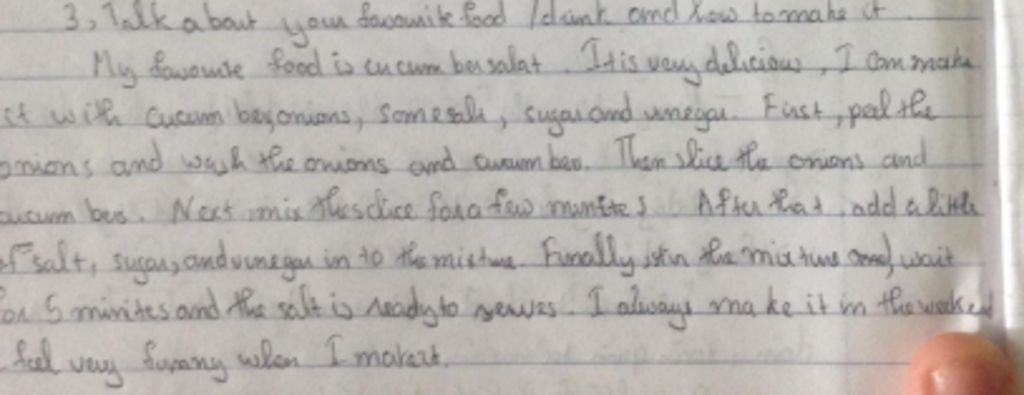 3, Talk about your favourite food /drink and how to make it.
My favourite food is cucumber salat. It is very delicious, I can make
it with cucumber, onions, some salt, sugar and vinegar. First, peel the
onions and wash the onions and cucumber. Then slice the onions and
cucumber. Next mix the slice for a few munites. After that add a little
of salt, sugar, and vinegar in to the mixture. Finally, stir the mixture and wait
for 5 minites and the salt is ready to serves. I always make it in the weekend
feel very funny when I make it.